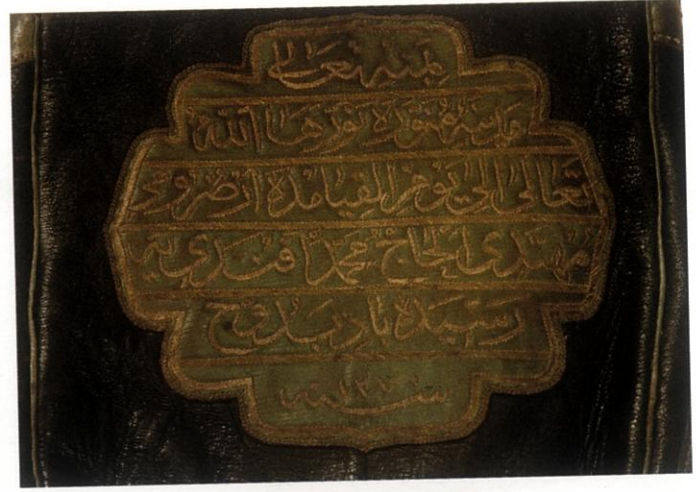 بمنه تعالى
مدينة منورة نورها الله
تعالى الى يوم القيامده ارضرومى
مهتدى الحاج محمد افندى يه
رسيده باد
سنه